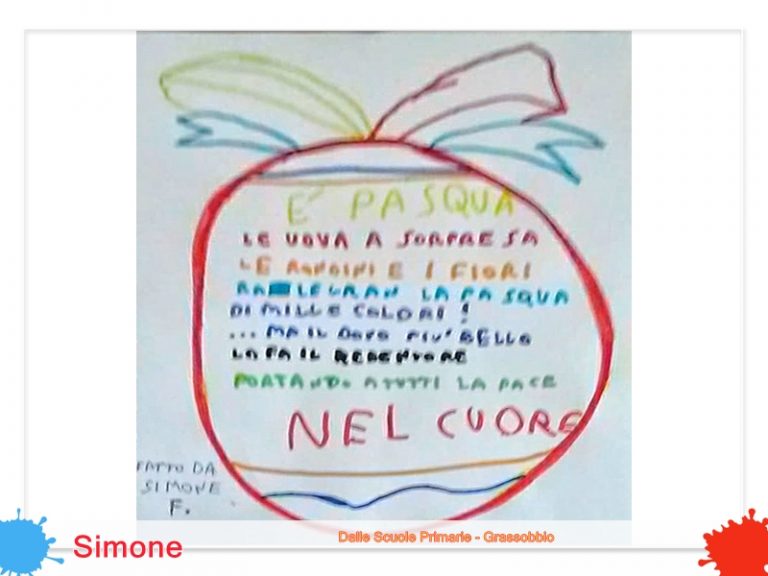 E' PASQUA
LE UOVA A SORPRESA
LE RONDINI E I FIORI
RALLEGRAN LA PASQUA
DI MILLE COLORI!
... MA IL DONO PIU' BELLO
LO FA IL REDENTORE
PORTANDO A TUTTI LA PACE
NEL CUORE
FATTO DA
SIMONE
F.
Simone
Dalle Scuole Primarie - Grassobbio